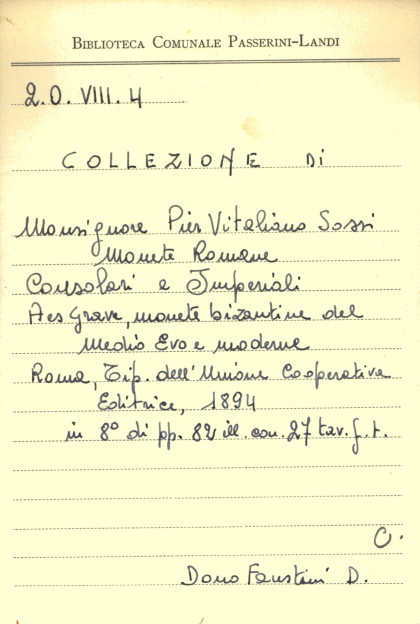 BIBLIOTECA COMUNALE PASSERINI-LANDI
2.O.VIII.4
COLLEZIONE DI
Monsignore Pier Vitaliano Sossi
Monete Romane
Consolari e Imperiali
Aes Grave, monete bizantine del
Medio Evo e moderne
Roma, Tip. dell'Unione Cooperativa
Editrice, 1894
in 8° di pp. 82 ill. con 27 tav. f. t.
C.
Dono Faustini D.